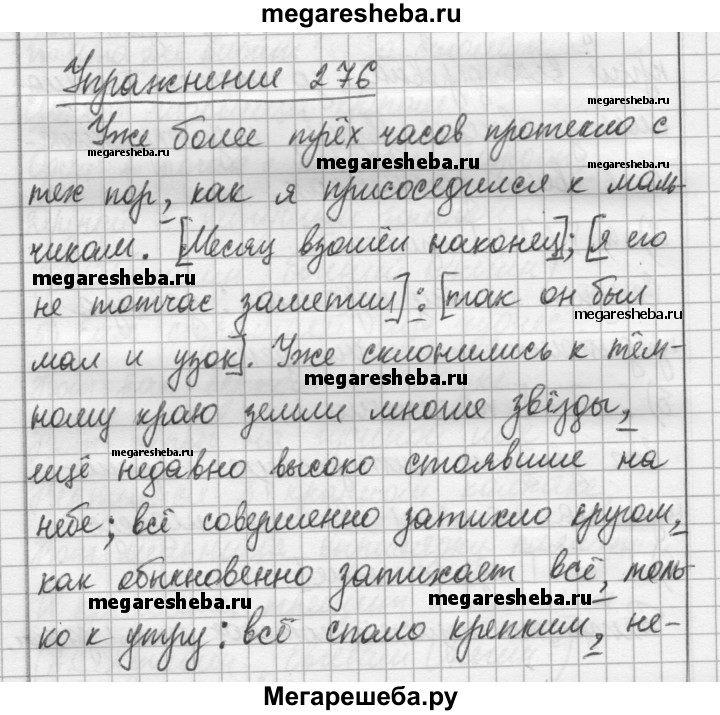 megaresheba.ru
Упражнение 276
megaresheba.ru
Уже более трёх часов протекло с
megaresheba.ru megaresheba.ru megaresheba.ru
тех пор, как я присоседился к маль-
чикам. [Месяц взошёл наконец]; [я его
megaresheba.ru
не тотчас заметил]: [так он был
megaresheba.ru
мал и узок]. Уже склонились к тём-
megaresheba.ru
ному краю земли многие звёзды,
megaresheba.ru
ещё недавно высоко стоявшие на
небе; всё совершенно затихло кругом,
как обыкновенно затихает всё, толь-
megaresheba.ru megaresheba.ru
ко к утру: всё спало крепким, не-
Мегарешеба.ру